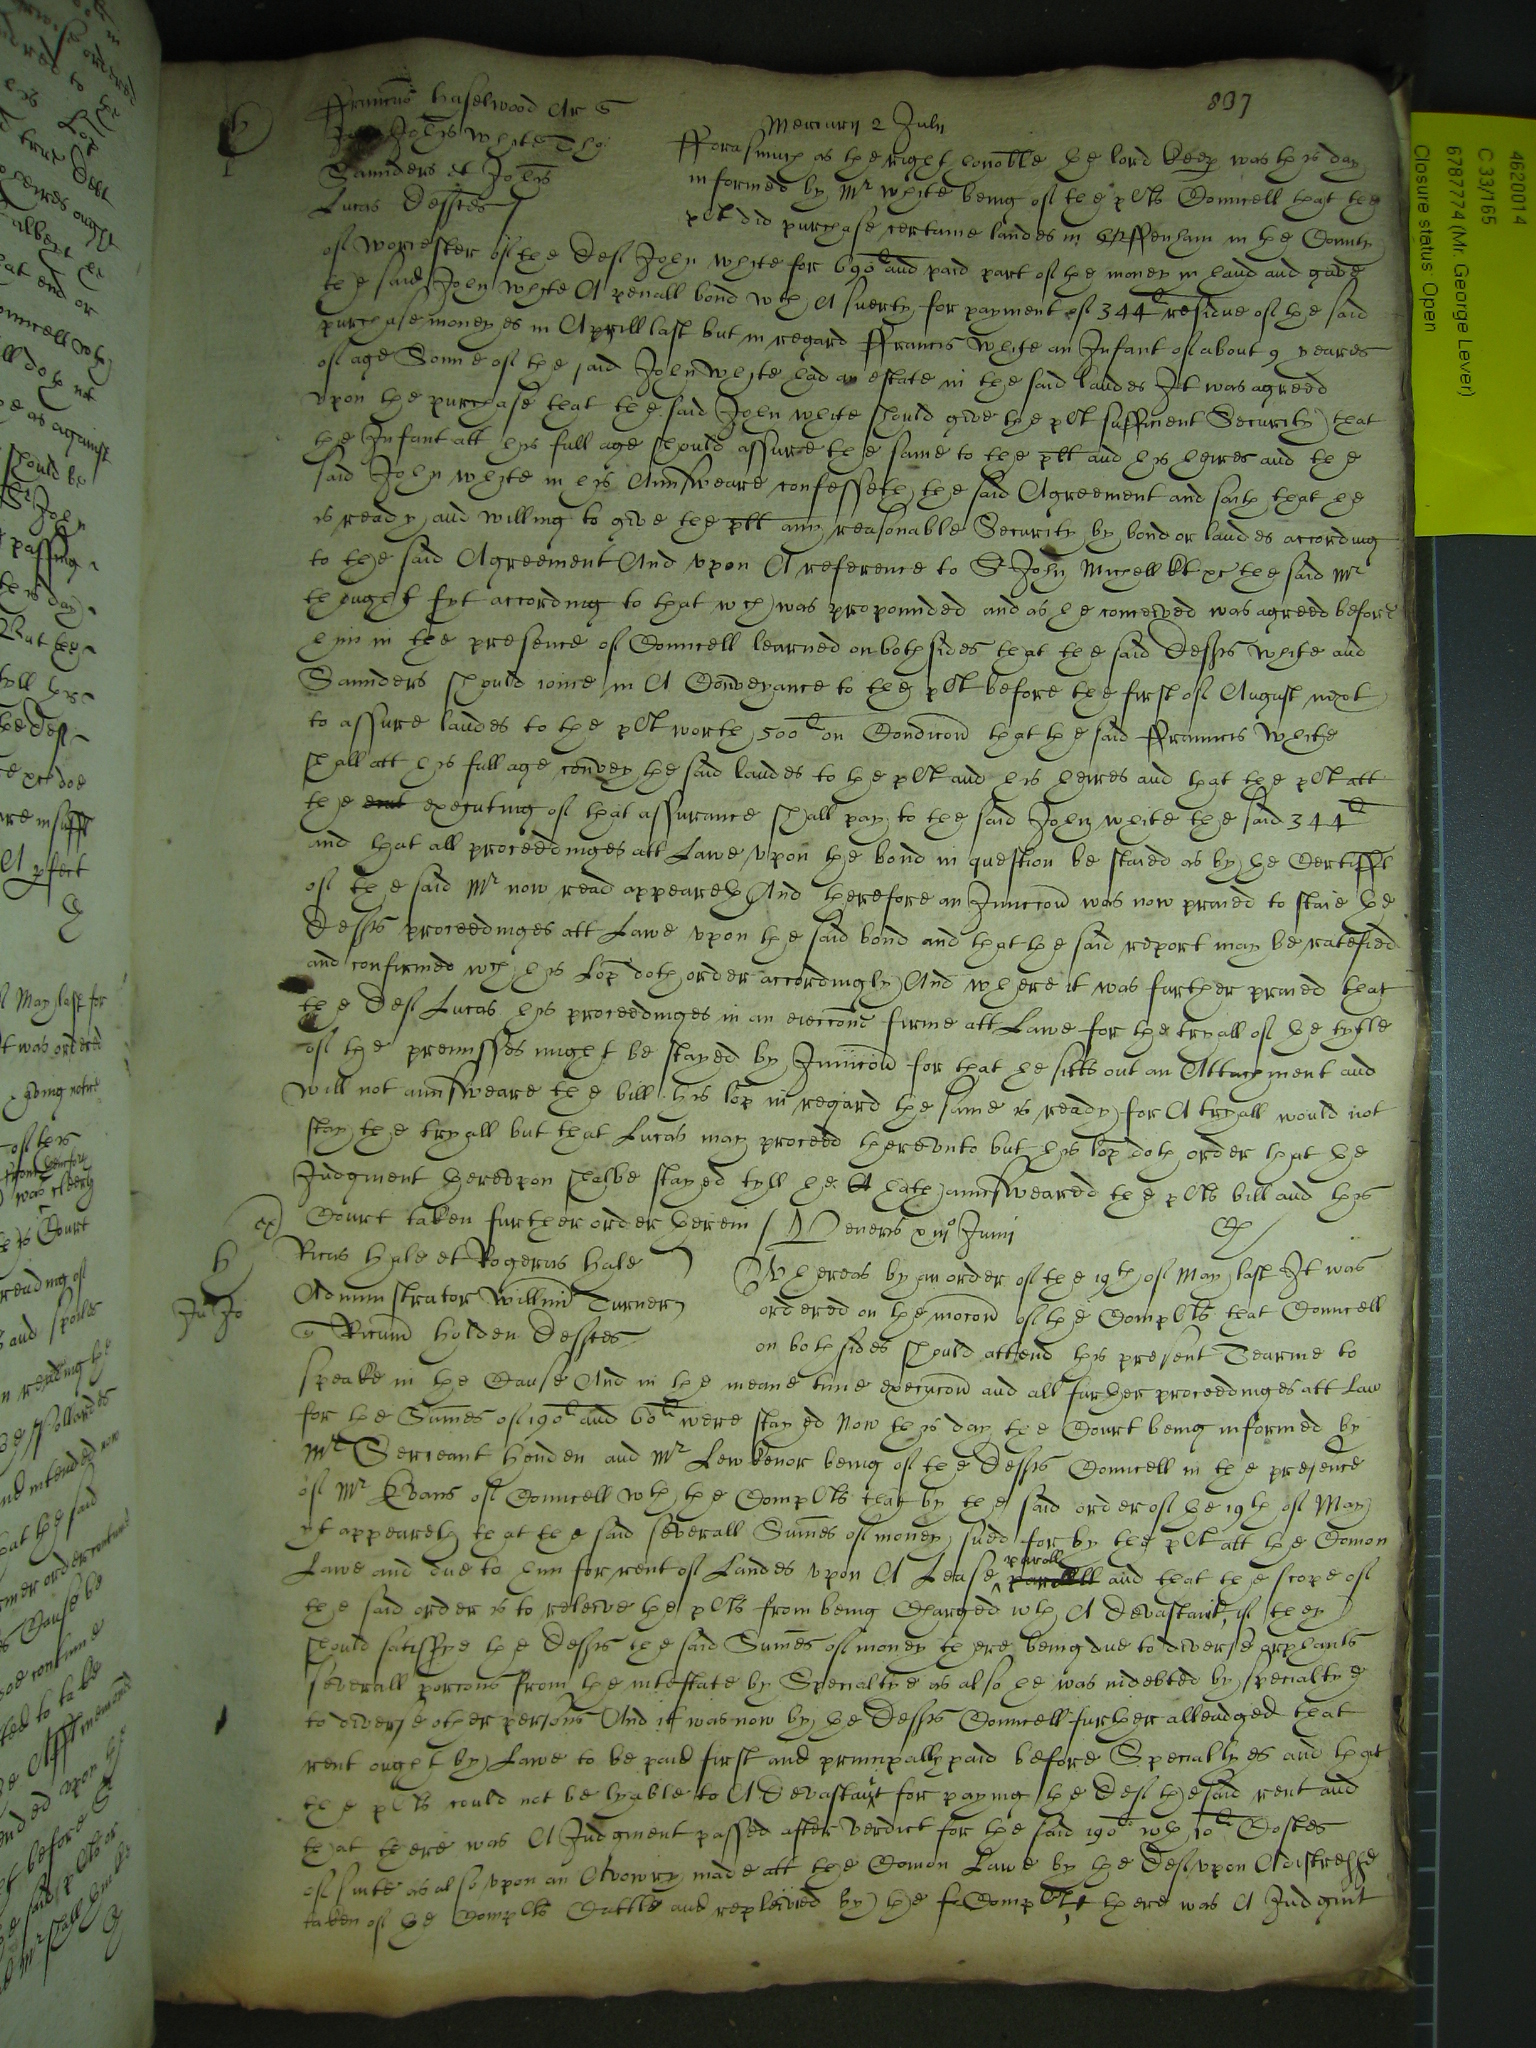 837
Mercurij 2 Julij
ffranciscus Haselwood Ar
Johis White Tho:
Saunders et Johis
Lucas Deftes
fforasmuch as the right honoble the lord keep was this day
informed by Mr White being of the plts Councell that the
plt did purchase certaine landes in in the County
of Worcester of the Deft John White for 690l and paid part of the money in hand and gave
the said John White A penall bond wth A suerty for payment of 344l residue of the said
purchase moneyes in Aprill last but in regard ffrancis White an Infant of about 9 yeares
of age Sonne of the said John White had an estate in the said landes It was agreed
vpon the purchase that the said John White should give the plt sufficient Security that
the Infant att his full age should assure the same to the plt and his heires and the
said John White in his Aunsweare confesseth the said Agreement and saith that he
is ready and willing to give the plt any reasonable Security by bond or landes according
to the said Agreement And vpon A reference to Sr John Michell kt &c the said Mr
thought fyt according to that wch was propounded and as he conceived was agreed before
him in the presence of Councell learned on both sides that the said Defts White and
Saunders should ioine in A Conveyance to the plt before the first of August next
to assure landes to the plt worth 500l on Condicon that the said ffrauncis White
shall att his full age convey the said landes to the plt and his heires and that the plt att
the executing of that assurance shall pay to the said John White the said 344l
and that all proceedinges att Lawe vpon the bond in question be staied as by the Certifft
of the said Mr now read appeareth And therefore an Iniuccon was now praied to staie the
Defts proceedinges att Lawe vpon the said bond and that the said report may be ratefied
and confirmed wch his Lop doth order accordingly And where it was further praied that
the Deft Lucas his proceedinges in an eieccone firme att Lawe for the tryall of the tytle
of the premisses might be stayed by Iniuccon for that he sitts out an Attachment and
will not aunsweare the bill his lop in regard the same is ready for A tryall would not
stay the tryall but that Lucas may proceed therevnto but his lop doth order that the
Judgment therevpon shalbe stayed tyll he hath aunsweared the plts bill and this
Court taken further order herein
Veneris xiijo Junij
Ricus Hale et Rogerus Hale
Administrator Willmi Turner
Ricum Holden Deftes
Whereas by an order of the 19th of May last It was
ordered on the mocon of the Complts that Councell
on both sides should attend this present Tearme to
speake in the Cause And in the meane time execucon and all further proceedinges att Law
for the Sumes of 190l and 60l were stayed Now this day the Court being informed by
Mr Serieant Henden and Mr Lewkenor being of the Defts Councell in the presence
of Mr Evans of Councell wth the Complts that by the said order of the 19th of May
yt appeareth that the said severall Sumes of money sued for by the plt att the Comon
Lawe and due to him for rent of Landes vpon A Lease paroll and that the scope of
the said order is to releive the plts from being Charged wth A Devastavit if they
should satisfye the Defts the said Sumes of money there being due to diverse orphants
severall porcons from the intestate by Specialtye as also he was indebted by specialtye
to diverse other persons And it was now by the Defts Councell further alleadged that
rent ought by Lawe to be paid first and principally paid before Specialtyes and that
the plts could not be lyable to A Devastavit for paying the Deft the said rent and
that there was A Judgment passed after verdict for the said 190l wth 10l Costes
of suite as also vpon an Avowry made att the Comon Lawe by the Deft vpon A distresse
taken of the Complts Cattle and replevied by the Complt there was A Judgmt
4620014
C 33/165
6787774 (Mr. George Lever)
Closure status: Open